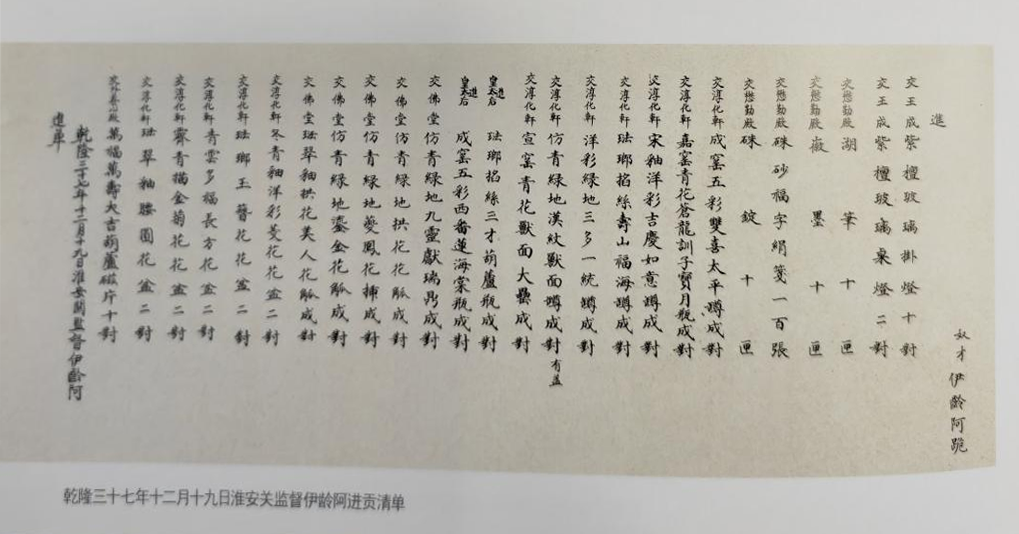 奴才伊齡阿跪
進
交王成紫檀玻璃掛燈十對
交王成紫檀玻璃桌燈二對
交懋勤殿湖筆十匣
交懋勤殿徽墨十匣
交懋勤殿硃砂福字絹箋一百張
交懋勤殿硃錠十匣
交淳化軒成窑五彩雙喜太平罇成對
交淳化軒嘉窑青花蒼龍訓子寶月瓶成對
交淳化軒宋釉洋彩吉慶如意罇成對
交淳化軒琺瑯掐絲壽山福海罇成對
交淳化軒洋彩綠地三多一統罇成對
交淳化軒仿青綠地漢紋獸面罇成對有蓋
交淳化軒宣窑青花獸面大罍成對
進皇太后琺瑯掐絲三才葫蘆瓶成對
進皇太后成窑五彩西番蓮海棠瓶成對
交佛堂仿青綠地九靈獻瑞鼎成對
交佛堂仿青綠地拱花花觚成對
交佛堂仿青綠地夔鳳花插成對
交佛堂仿青綠地鎏金花觚成對
交佛堂琺翠釉拱花美人花觚成對
交淳化軒冬青釉洋彩菱花花盆二對
交淳化軒琺瑯玉簪花花盆二對
交淳化軒青雲多福長方花盆二對
交淳化軒霽青描金菊花花盆二對
交淳化軒琺翠釉腰圓花盆二對
萬福萬壽大吉葫蘆磁片十對
乾隆三十七年十二月十九日淮安關監督伊齡阿
進單
乾隆三十七年十二月十九日淮安关监督伊龄阿进贡清单